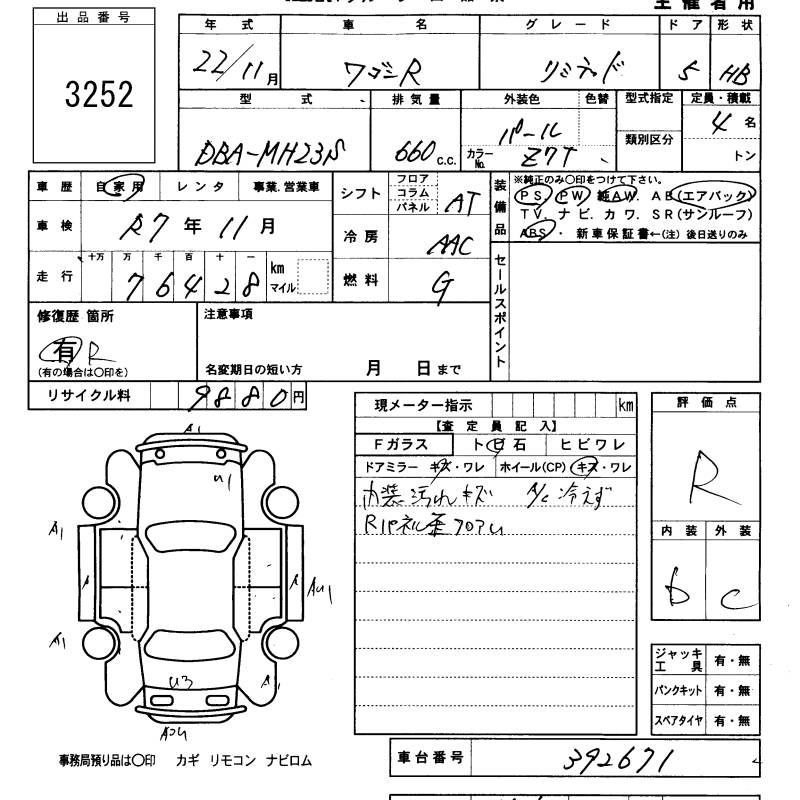 主催者用
出品番号
3252
年式 車名 グレード ドア 形状
22/11月 ワゴンR リミテッド 5 HB
型式 排気量 外装色 色替 型式指定 定員・積載
DBA-MH23S 660c.c. パール 類別区分 4名
カラーNo. Z7T トン
車歴 自家用 レンタ 事業.営業車 シフト フロア コラム パネル AT
車検 R7年11月 冷房 AAC
走行 十万 万 千 百 十 一 km マイル 燃料 G
76428
装備品 ※純正のみ〇印をつけて下さい。
PS. PW. 純AW. AB(エアバック)
TV. ナビ. カワ. SR(サンルーフ)
ABS・ 新車保証書←(注) 後日送りのみ
セールスポイント
修復歴 箇所 注意事項
有 R
(有の場合は〇印を) 名変期日の短い方 月 日まで
リサイクル料 9880円
現メーター指示 km
【査定員記入】
Fガラス ト目石 ヒビワレ
ドアミラー キズ・ワレ ホイール(CP) キズ・ワレ
内装汚れキズ A/C冷えず
Rパネル歪フロアU
評価点
R
内装 外装
b c
ジャッキ工具 有・無
パンクキット 有・無
スペアタイヤ 有・無
A1
U1
A1
A
A
AU1
A1
U3
A1
事務局預り品は〇印 カギ リモコン ナビロム
車台番号 392671